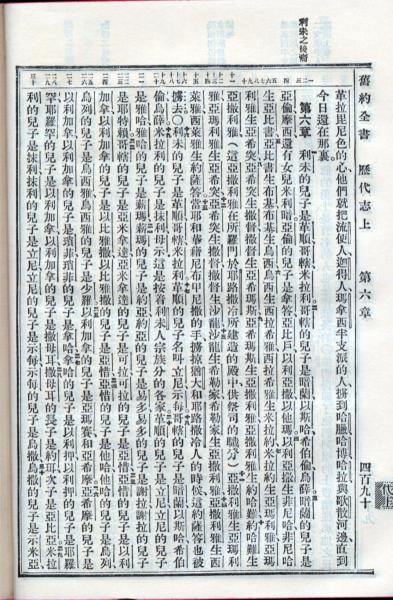 利未之後裔
舊約全書 歷代志上 第六章 四百九十
革拉毘尼色的心他們就把流便人迦得人瑪拿西半支派的人擄到哈臘哈博哈拉與歌散河邊直到
今日還在那裏
第六章 利未的兒子是革順哥轄米拉利哥轄的兒子是暗蘭以斯哈希伯倫烏薛暗蘭的兒子是
亞倫摩西還有女兒米利暗亞倫的兒子是拿答亞比戶以利亞撒以他瑪以利亞撒生非尼哈非尼哈
生亞比書亞比書生布基布基生烏西烏西生西拉希雅西拉希雅生米拉約米拉約生亞瑪利雅亞瑪
利雅生亞希突亞希突生撒督撒督生亞希瑪斯亞希瑪斯生亞撒利雅亞撒利雅生約哈難約哈難生
亞撒利雅（這亞撒利雅在所羅門於耶路撒冷所建造的殿中供祭司的職分）亞撒利雅生亞瑪利
雅亞瑪利雅生亞希突亞希突生撒督撒督生沙龍沙龍生希勒家希勒家生亞撒利雅亞撒利雅生西
萊雅西萊雅生約薩答當耶和華藉尼布甲尼撒的手擄掠猶大和耶路撒冷人的時候這約薩答也被
擄去〇利未的兒子是革順哥轄米拉利革順的兒子名叫立尼示每哥轄的兒子是暗蘭以斯哈希伯
倫烏薛米拉利的兒子是抹利母示這是按着利未人宗族分的各家革順的兒子是立尼立尼的兒子
是雅哈雅哈的兒子是薪瑪薪瑪的兒子是約亞約亞的兒子是易多易多的兒子是謝拉謝拉的兒子
是耶特賴哥轄的兒子是亞米拿達亞米拿達的兒子是可拉可拉的兒子是亞惜亞惜的兒子是以利
加拿以利加拿的兒子是以比雅撒以比雅撒的兒子是亞惜亞惜的兒子是他哈他哈的兒子是烏列
烏列的兒子是烏西雅烏西雅的兒子是少羅以利加拿的兒子是亞瑪賽和亞希摩亞希摩的兒子是
以利加拿以利加拿的兒子是瑣菲瑣菲的兒子是拿哈拿哈的兒子是以利押以利押的兒子是耶羅
罕耶羅罕的兒子是以利加拿以利加拿的兒子是撒母耳撒母耳的長子是約珥次子是亞比亞米拉
利的兒子是抹利抹利的兒子是立尼立尼的兒子是示每示每的兒子是烏撒烏撒的兒子是示米亞